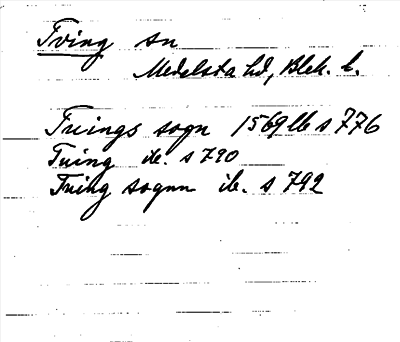 Tving sn
Medelsta hd, Blek. l.
Tuings sogn 1569 lb s 776
Tuing ib. s 790
Tving sognn ib. s 792